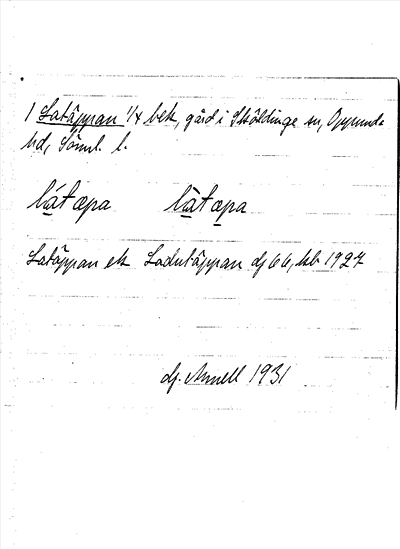 1 Latäppan 1/4 bek, gård i Sköldinge sn, Oppunda
hd, Söml. l.
la̱tæpa la̱tæ̱pa
Latäppan ek Ladutäppan dj 66, kb 1927
dj. Annell 1931